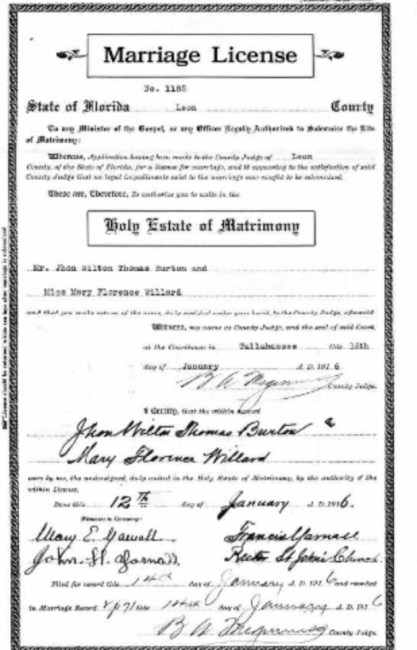 Marriage License
No. 1188
State of Florida Leon County
To any Minister of the Gospel, or any Officer Legally Authorized to Solemnize the Rite
of Matrimony:
Whereas, Application having been made to the County Judge of Leon
County, of the State of Florida, for a license for marriage, and it appearing to the satisfaction of said
County Judge that no legal impediments exist to the marriage now sought to be solemnized.
These are, Therefore, To authorize you to unite in the
Holy Estate of Matrimony
Mr. Jhon Wilton Thomas Burton and
Miss Mary Florence Willard
and that you make return of the same, duly certified under your hand, to the County Judge
Witness, my name as County Judge, and the seal of said Court,
at the Courthouse in Tallahassee this
day of January A. D. 1916
County Judge.
I Certify, that the within named
Jhon Wilton Thomas Burton &
Mary Florence Willard
were by me, the undersigned, duly united in the Holy Estate of Matrimony, by the authority of the
within License.
Done this 12th day of January A. D. 1916.
Witnesses
Mary E. Francis Yarnall
John H. Rector St John's Church
Filed for record this 14th day of January A. D. 1916 and recorded
in Marriage Record this 14th day of January A. D. 191
County Judge.